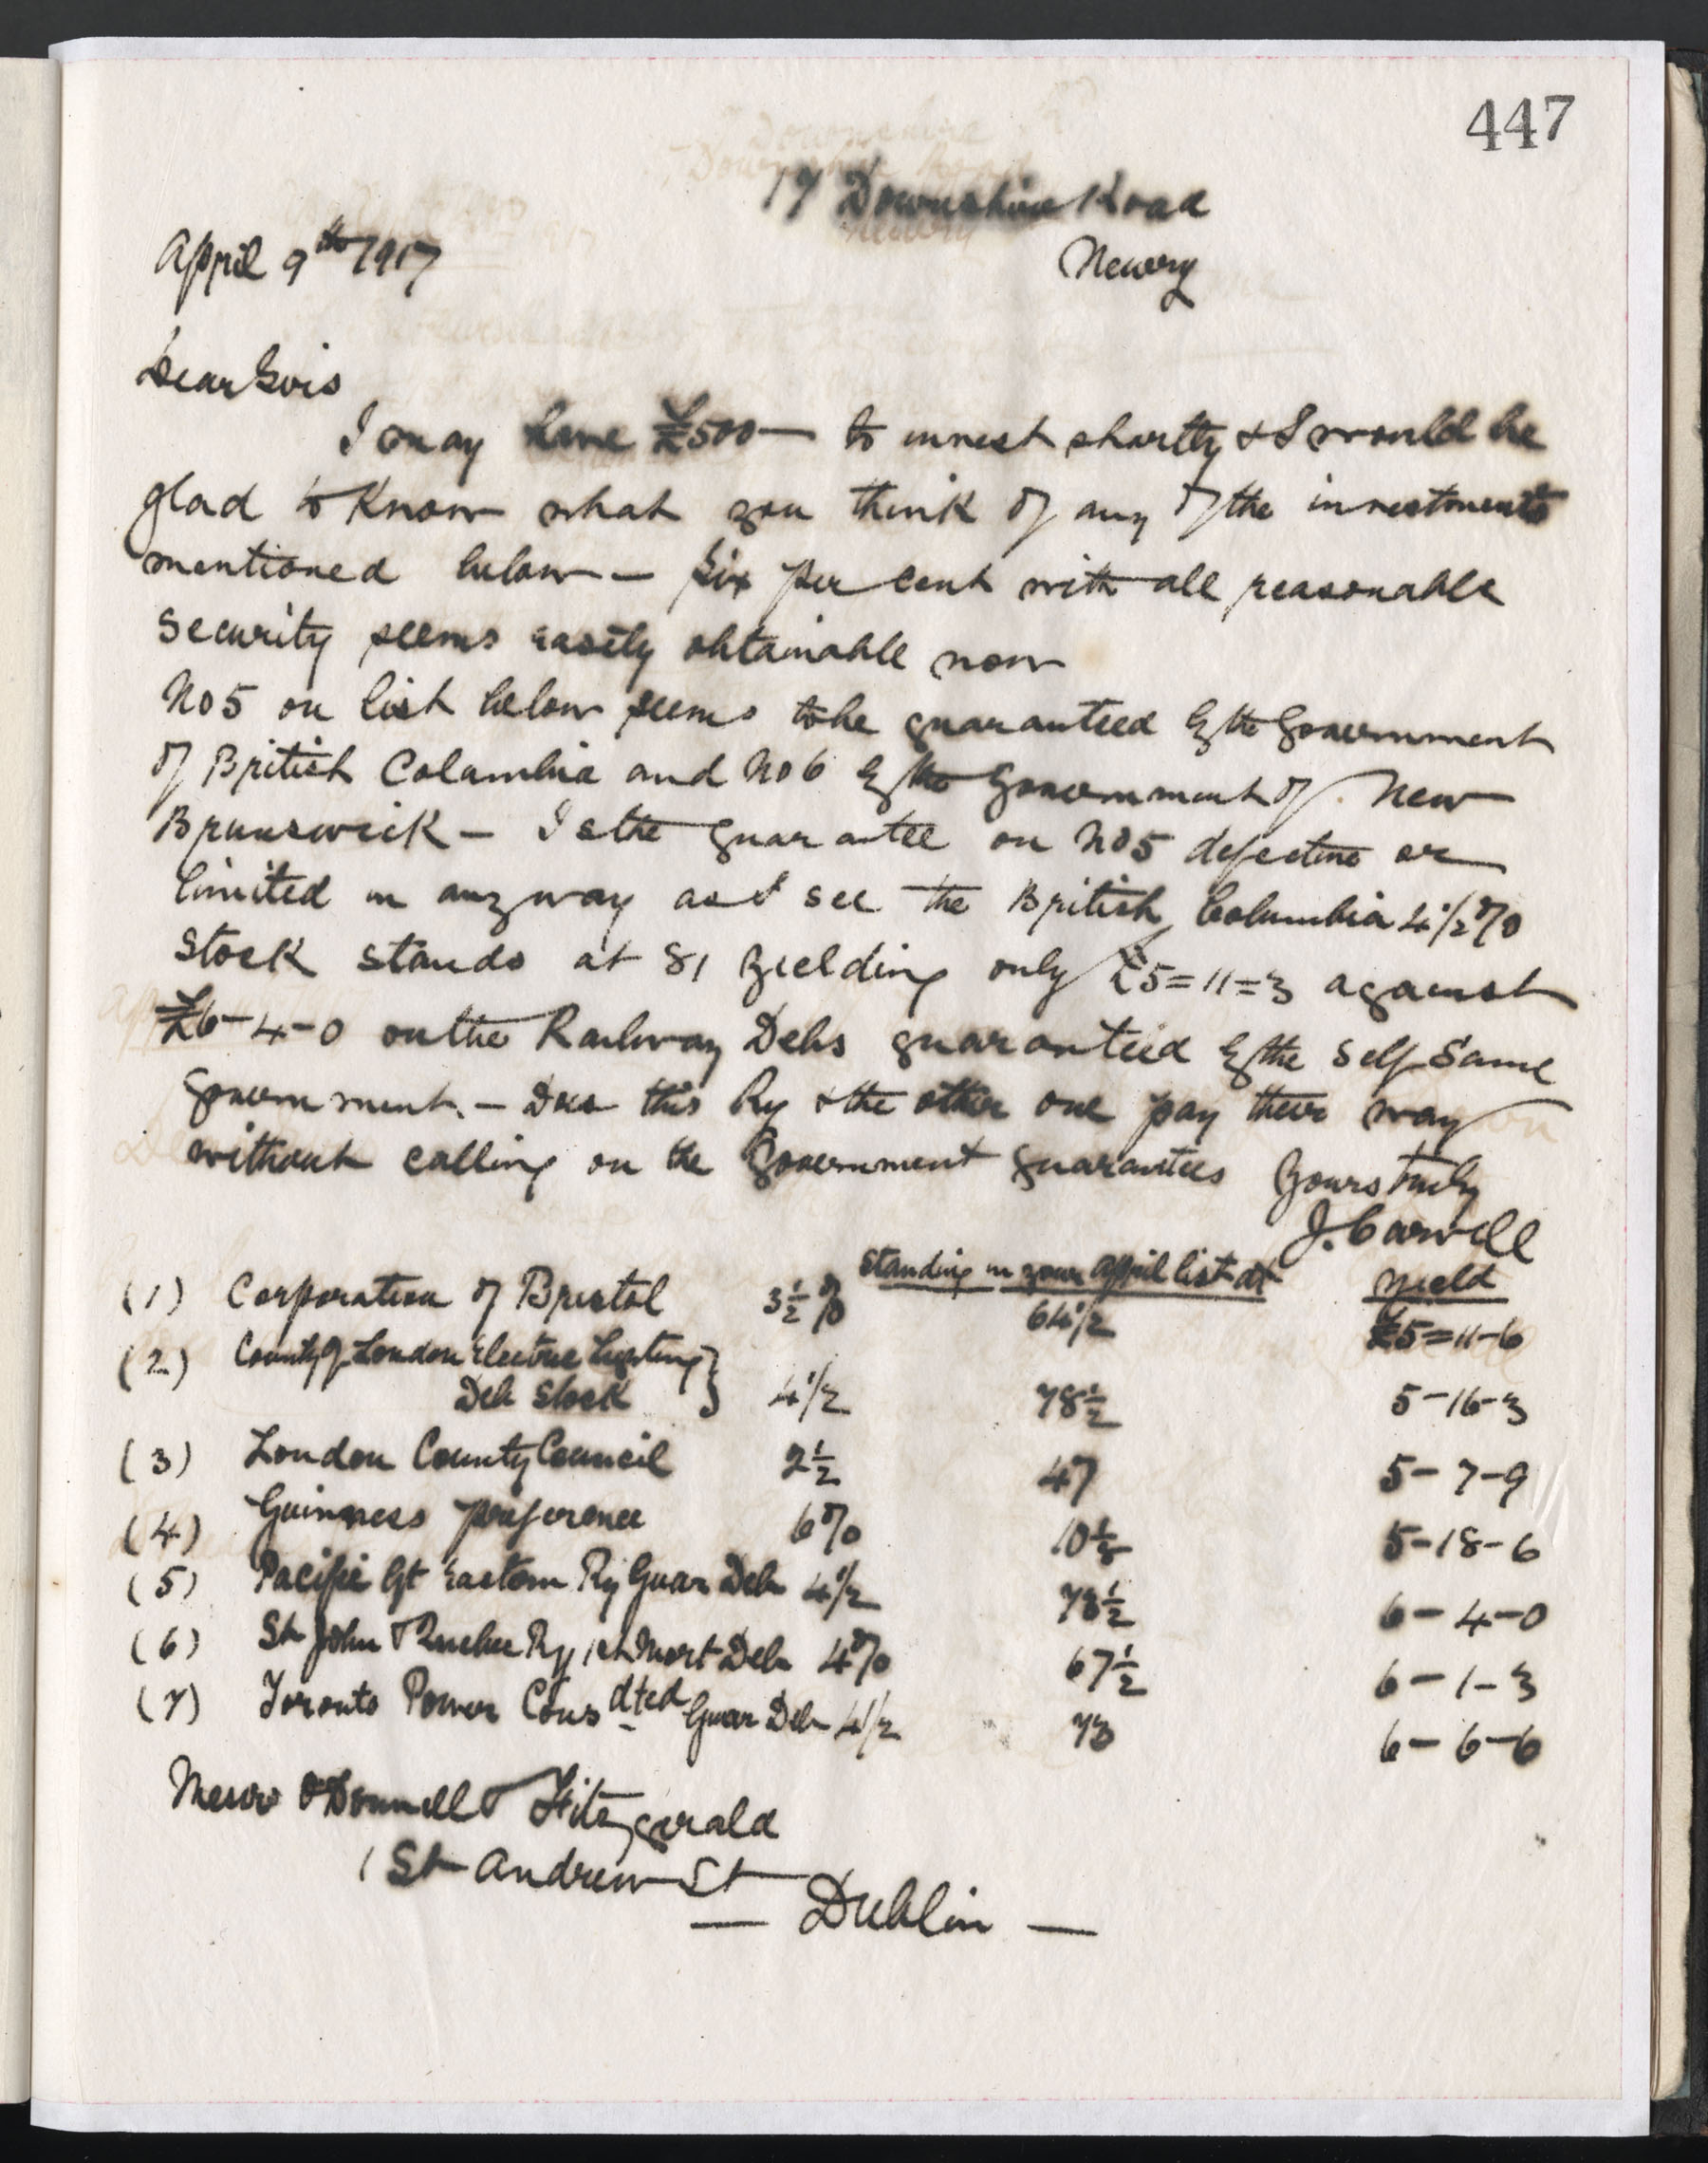 447
17 Downshire Road
April 9th 1917
Newry
Dear Sirs
I may have £500 — to invest shortly & I would be
glad to know what you think of any of the investments
mentioned below — Six per cent with all reasonable
security seems easily obtainable now
No 5 on list below seems to be guaranteed by the Government
of British Columbia and No 6 by the Government of New
Brunswick — Is the guarantee on No 5 defective or
limited in any way as I see the British Columbia 4 1/2 %
stock stands at 81 yielding only £5=11=3 against
£6-4-0 on the Railway Debs guaranteed by the self same
Government. — Does this Ry & the other one pay their way
without calling on the Government guarantees Yours truly
J. Carvill
standing in your april list at yield
(1) Corporation of Bristol 3½ % 64 1/2 £5=11-6
(2) County of London Electric Lighting }
Deb Stock 4 1/2 78½ 5-16-3
(3) London County Council 2½ 47 5-7-9
(4) Guinness preference 6 % 10⅛ 5-18-6
(5) Pacific Gt Eastern Ry Guar Deb 4 1/2 73½ 6-4-0
(6) St John & Quebec Ry 1st Mort Deb 4 % 67½ 6-1-3
(7) Toronto Power Consdted Guar Deb 4 1/2 73 6-6-6
Messrs O'Donnell & Fitzgerald
1 St Andrew St
— Dublin —